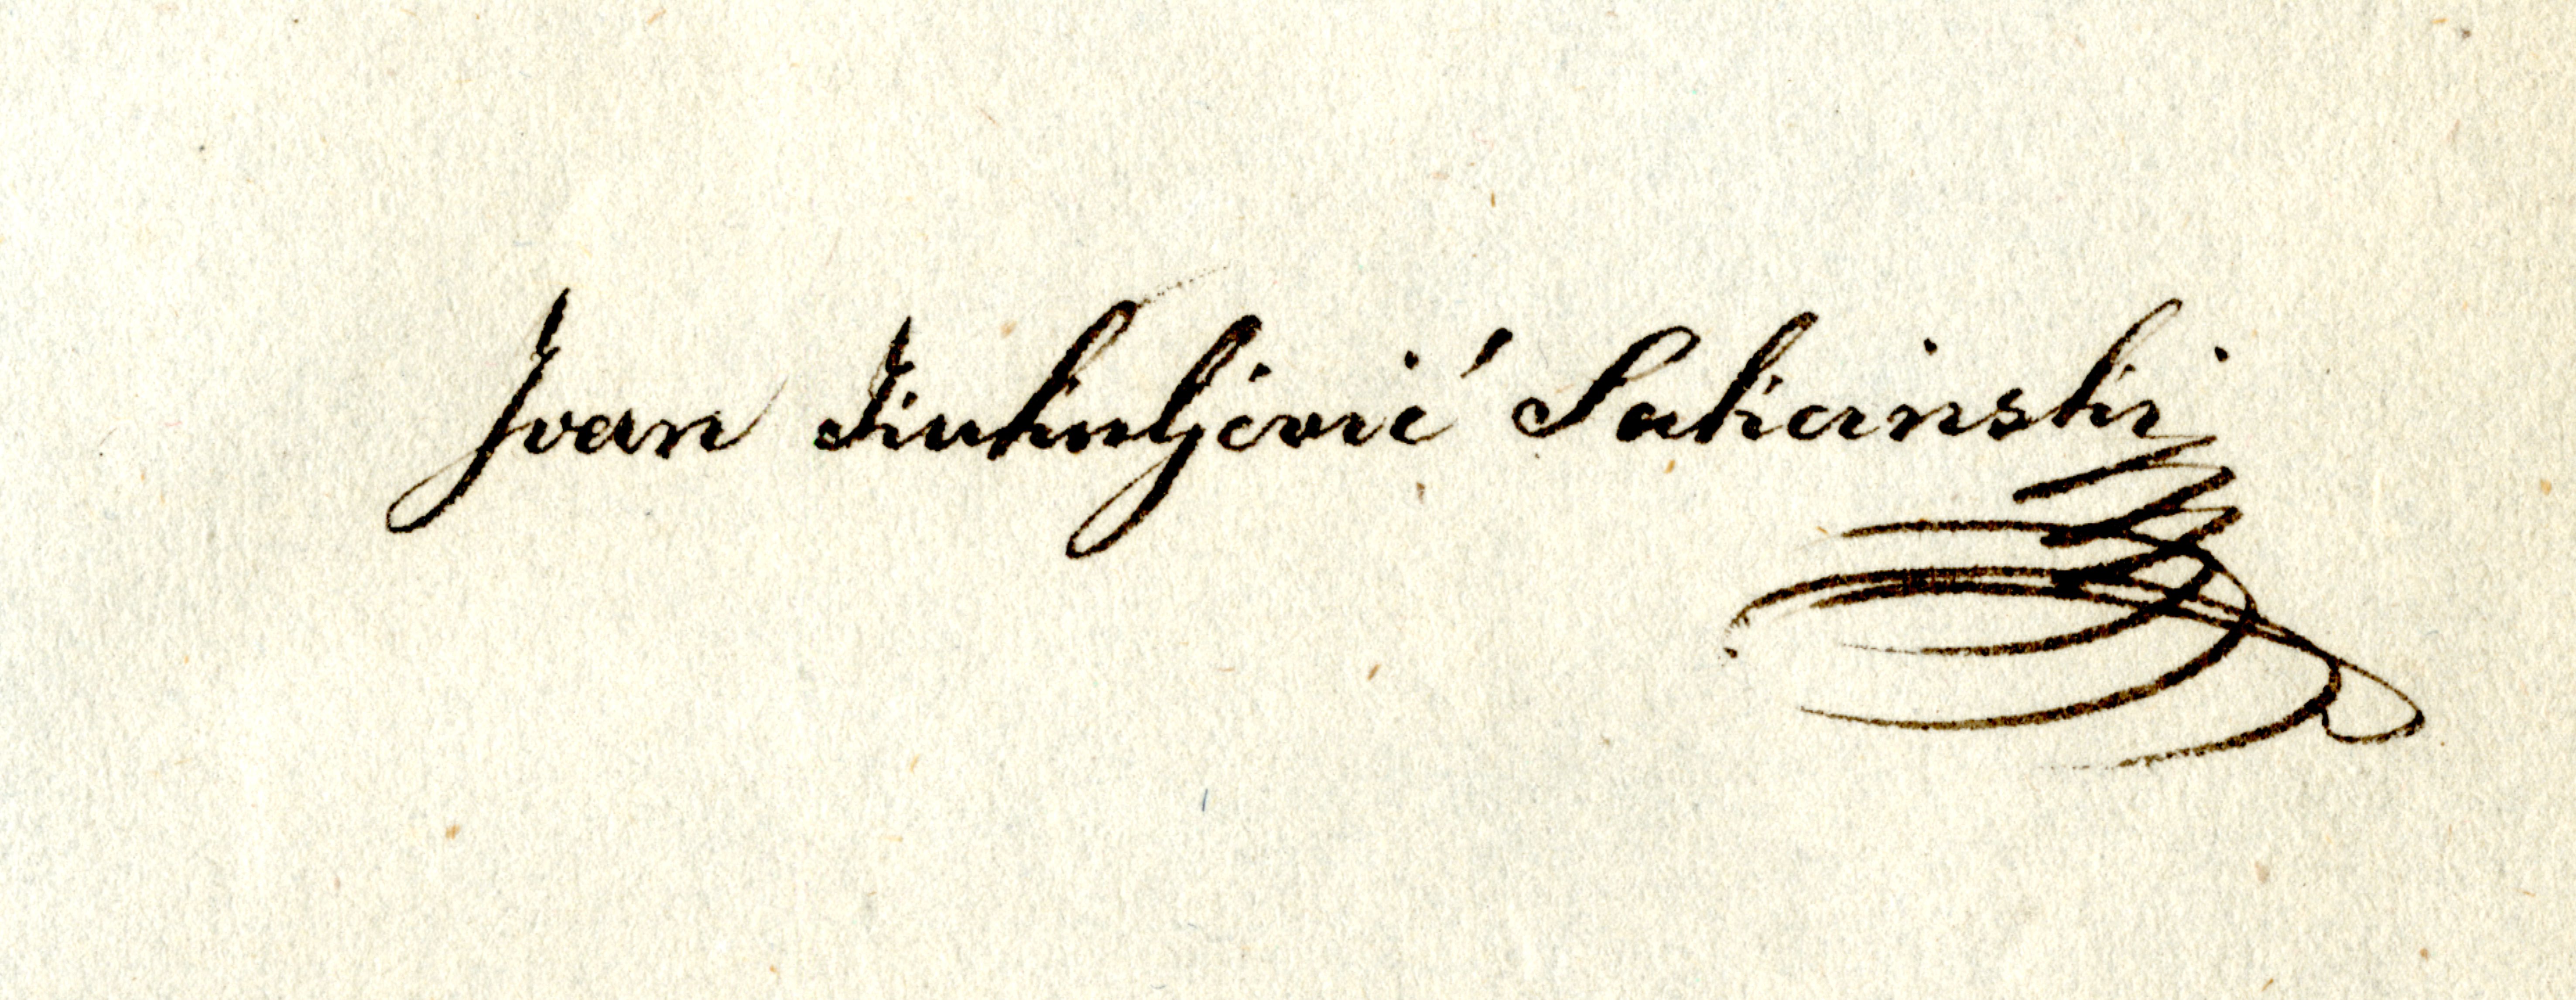 Ivan Kukuljević Sakcinski